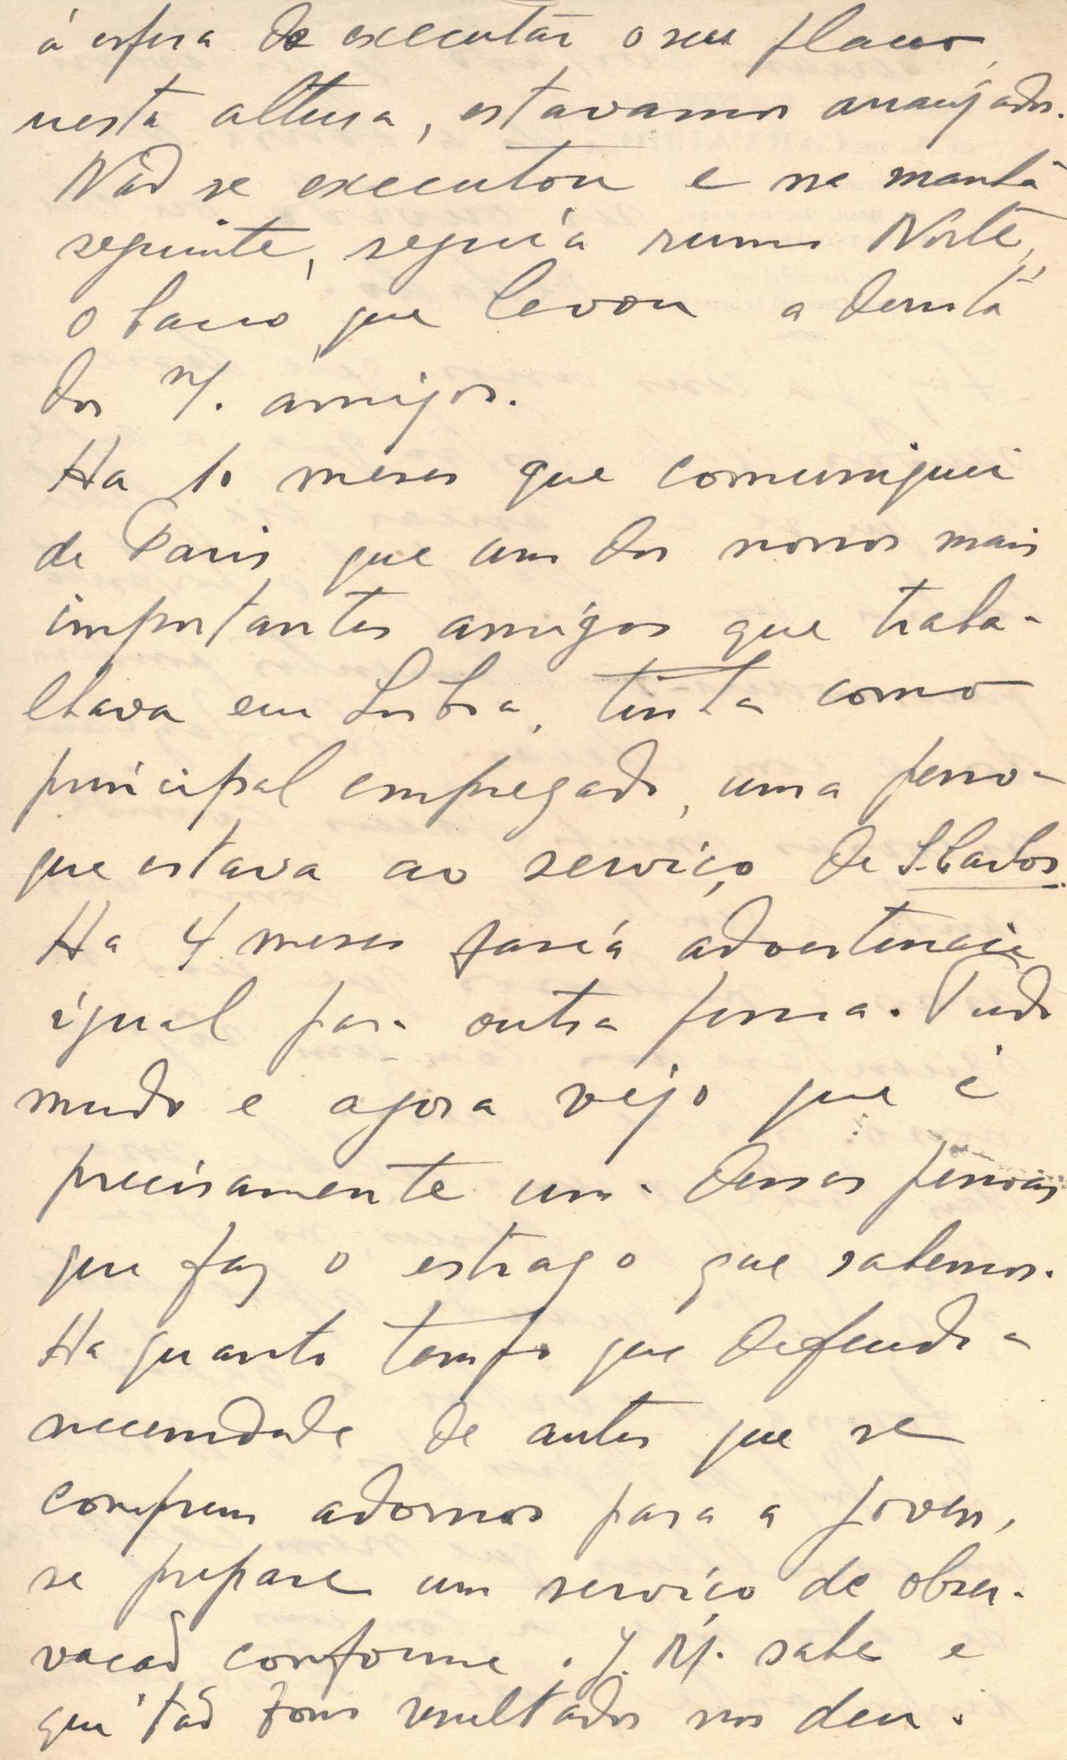 á espera de executar o seu plano,
nesta altura, estavamos arranjados.
Não se executou e na manhã
seguinte, seguia rumo Norte,
o barco que levou a derrota
dos n/. amigos.
Ha 10 meses que comuniquei
de Paris que um dos nossos mais
importantes amigos que traba-
lhava em Lisboa, tinha como
principal empregado, uma pessoa
que estava ao serviço de S. Carlos.
Ha 4 meses fazia advertencia
igual para outra pessoa. Tudo
mudo e agora vejo que é
precisamente uma dessas pessoas
que faz o estrago que sabemos.
Ha quanto tempo que defendo a
necessidade de antes que se
comprem adornos para a joven,
se prepare um serviço de obser-
vacão conforme. J. M. sabe e
que tão bons resultados nos deu.